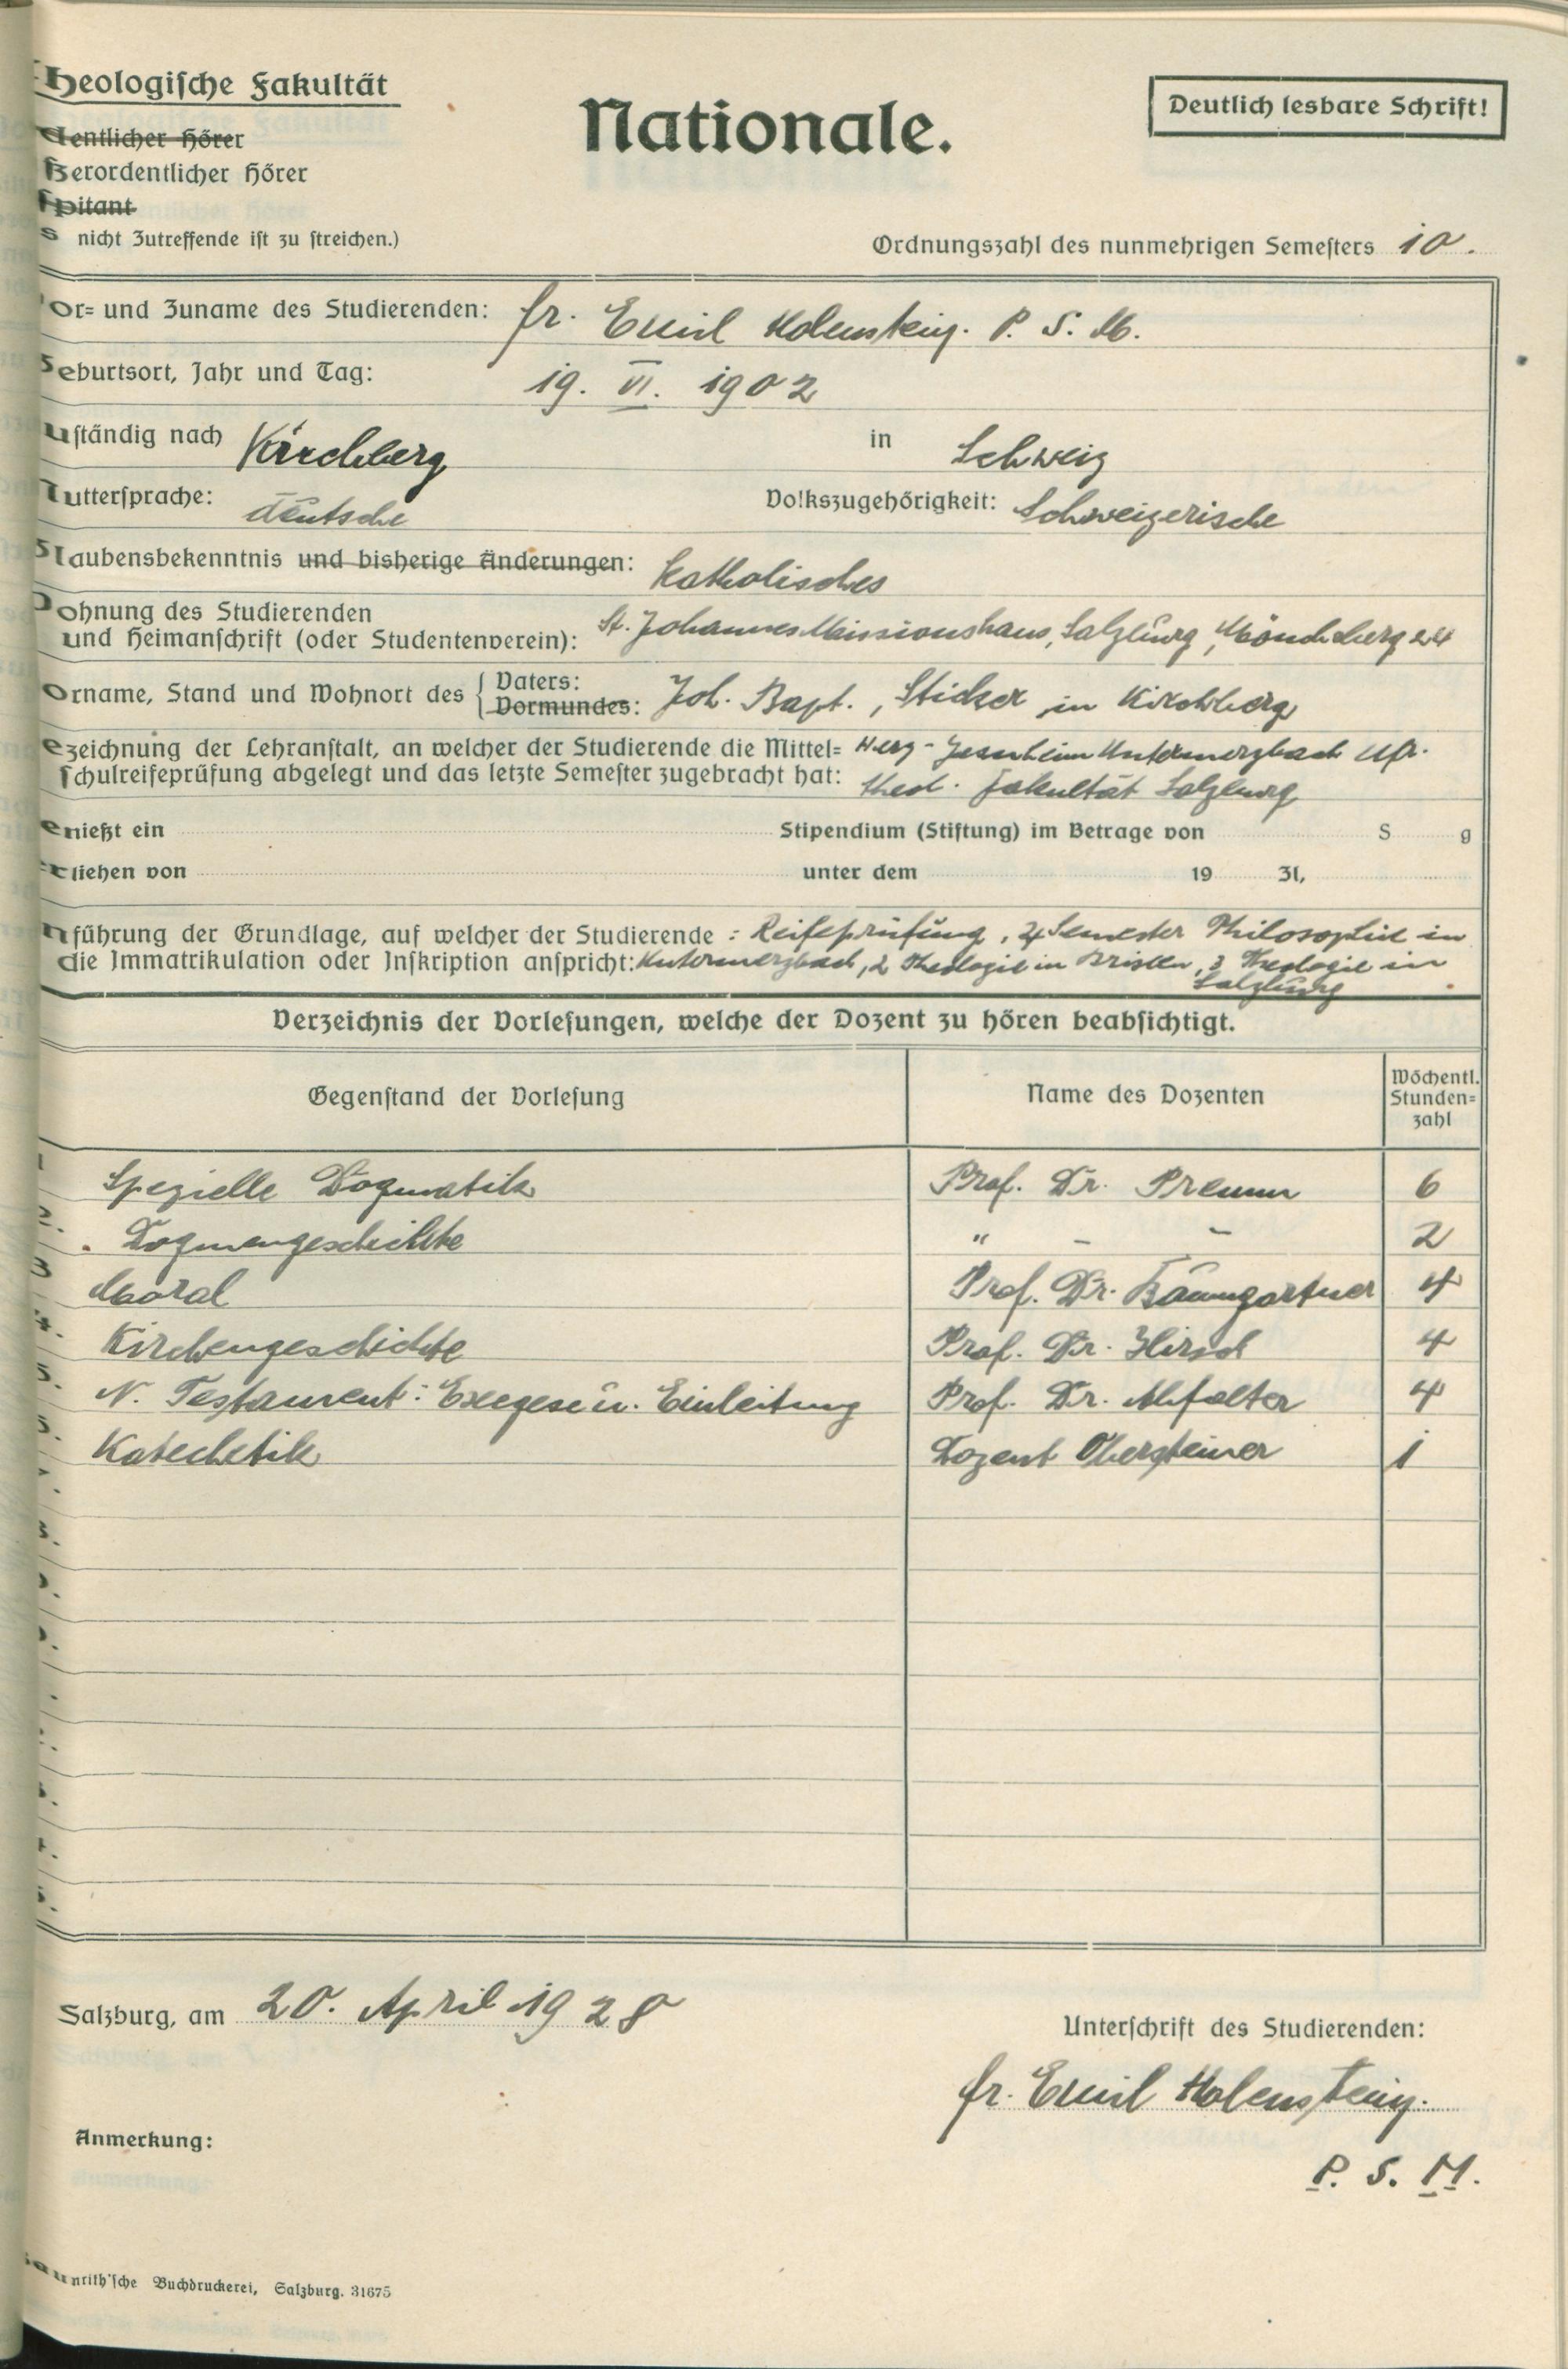 Theologische Fakultät
Nationale.
Deutlich lesbare Schrift!
dentlicher Hörer
ßerordentlicher Hörer
spitant
s nicht Zutreffende ist zu streichen.)
Ordnungszahl des nunmehrigen Semesters 10.
Vor- und Zuname des Studierenden: fr. Emil Holenstein. P. S. M.
Geburtsort, Jahr und Tag: 19. VI. 1902
uständig nach Kirchberg in Schweiz
Muttersprache: deutsche Volkszugehörigkeit: Schweizerische
Glaubensbekenntnis und bisherige Änderungen: katholisches
Wohnung des Studierenden
und Heimanschrift (oder Studentenverein): St. Johannes Missionshaus, Salzburg, Mönchsberg 24
orname, Stand und Wohnort des Vaters:
Vormundes: Joh. Bapt., Sticker in Kirchberg
ezeichnung der Lehranstalt, an welcher der Studierende die Mittel= Herz-Jesuheim Untermerzbach Ufr.
schulreifeprüfung abgelegt und das letzte Semester zugebracht hat: theol. Fakultät Salzburg
enießt ein Stipendium (Stiftung) im Betrage von S g
rliehen von unter dem 19 31,
nführung der Grundlage, auf welcher der Studierende : Reifeprüfung, 4 Semester Philosophie in
die Immatrikulation oder Inskription anspricht: Untermerzbach, 2 Theologie in Brixen, 3 Theologie in
Salzburg
Verzeichnis der Vorlesungen, welche der Dozent zu hören beabsichtigt.
Gegenstand der Vorlesung Name des Dozenten Wöchentl. Stunden= zahl
1 Spezielle Dogmatik Prof. Dr. Premm 6
2. Dogmengeschichte " – – 2
3 Moral Prof. Dr. Baumgartner 4
4. Kirchengeschichte Prof. Dr. Hirsch 4
5. N. Testament: Exegese u. Einleitung Prof. Dr. Abfalter 4
6. Katechetik Dozent Obersteiner 1
Salzburg, am 20. April 1928
Unterschrift des Studierenden:
fr. Emil Holenstein.
P. S. M.
Anmerkung:
aunrith'sche Buchdruckerei, Salzburg. 31675